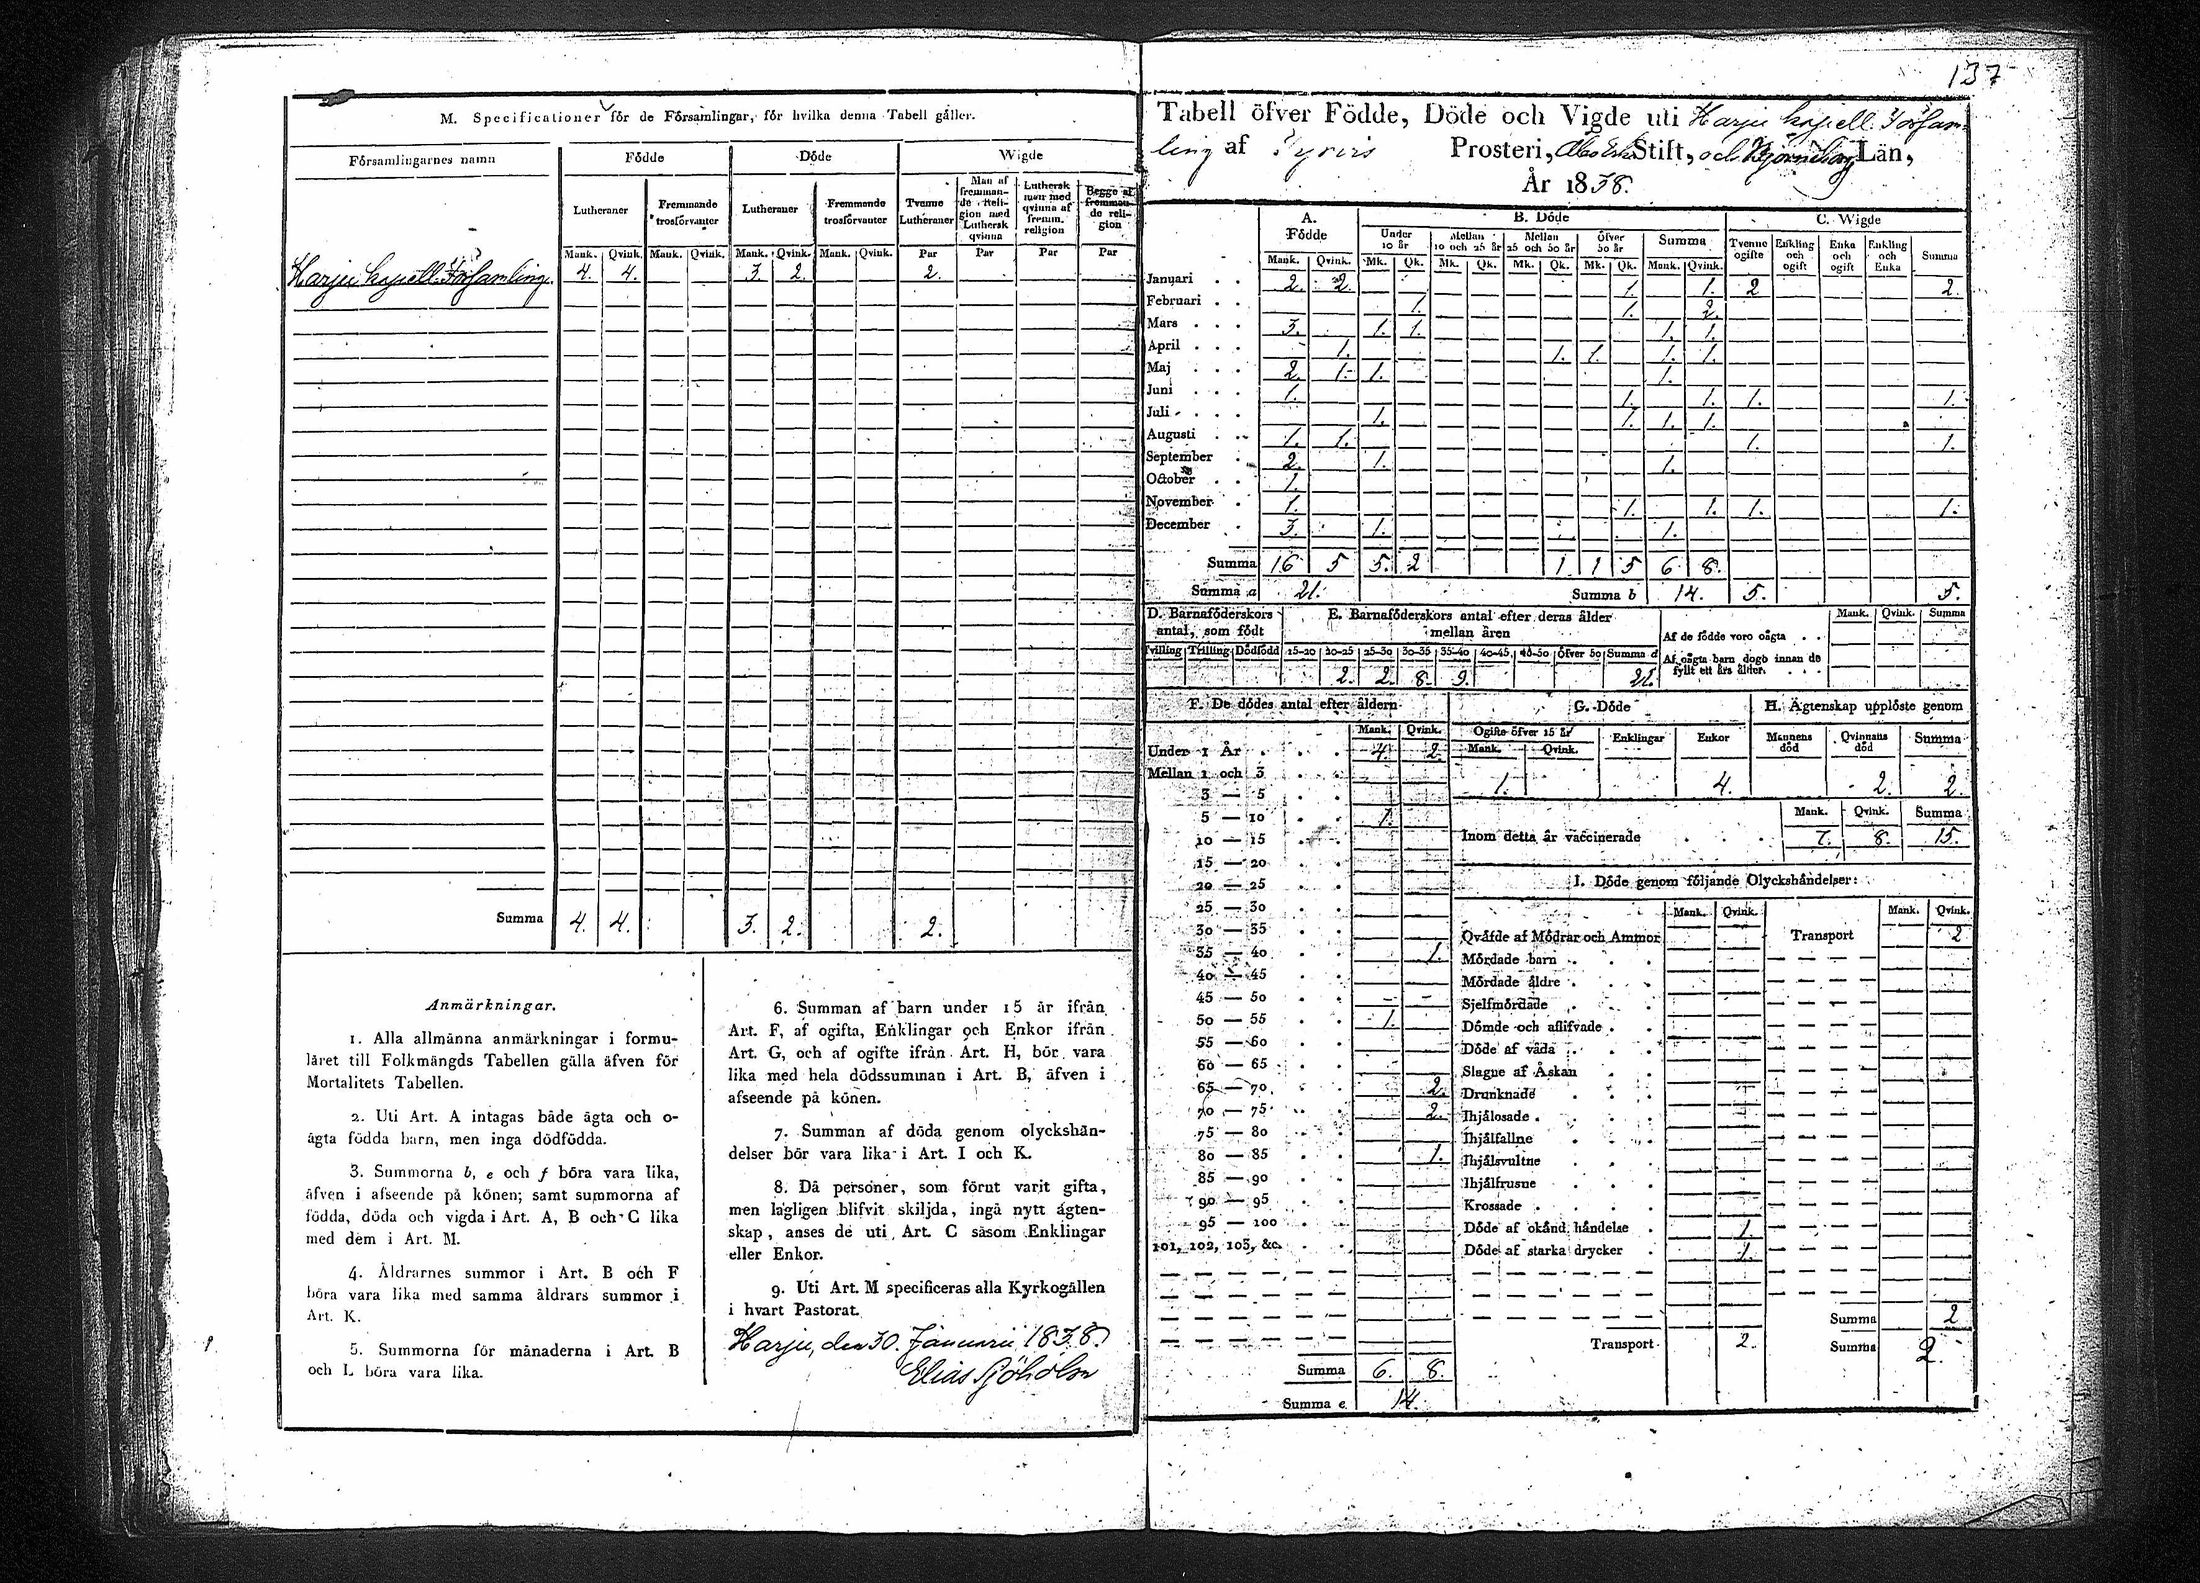 M. Specificationer för de Församlingar, för hvilka denna Tabell gäller.
Församlingarnes namn | Födde | Döde | Wigde
Lutheraner | Fremmande trosförvanter | Lutheraner | Fremmande trosförvanter | Tvenne Lutheraner | Man af fremmande Religion med Luthersk qvinna | Luthersk man med qvinna af fremm. religion | Begge af fremmande religion
Mank. | Qvink. | Mank. | Qvink. | Mank. | Qvink. | Mank. | Qvink. | Par | Par | Par | Par
Harju kapell Församling. 4. 4. 3. 2. 2.
Summa 4. 4. 3. 2. 2.
Anmärkningar.
1. Alla allmänna anmärkningar i formu-
läret till Folkmängds Tabellen gälla äfven för
Mortalitets Tabellen.
2. Uti Art. A intagas både ägta och o-
ägta födda barn, men inga dödfödda.
3. Summorna b, e och f böra vara lika,
äfven i afseende på könen; samt summorna af
födda, döda och vigda i Art. A, B och C lika
med dem i Art. M.
4. Åldrarnes summor i Art. B och F
böra vara lika med samma åldrars summor i
Art. K.
5. Summorna för månaderna i Art. B
och L böra vara lika.
6. Summan af barn under 15 år ifrån
Art. F, af ogifta, Enklingar och Enkor ifrån
Art. G, och af ogifte ifrån Art. H, bör vara
lika med hela dödssumman i Art. B, äfven i
afseende på könen.
7. Summan af döda genom olyckshän-
delser bör vara lika i Art. I och K.
8. Då personer, som förut varit gifta,
men lagligen blifvit skiljda, ingå nytt ägten-
skap, anses de uti Art. C såsom Enklingar
eller Enkor.
9. Uti Art. M specificeras alla Kyrkogällen
i hvart Pastorat.
Harju, den 30. Januarii 1838.
Elias Sjöholm
137
Tabell öfver Födde, Döde och Vigde uti Harju kapell Försam-
ling af Prosteri, Stift, och Björneborg Län,
År 1838.
A. Födde | B. Döde | C. Wigde
Under 10 år | Mellan 10 och 25 år | Mellan 25 och 50 år | Öfver 50 år | Summa | Tvenne ogifte | Enkling och ogift | Enka och ogift | Enkling och Enka | Summa
Mank. | Qvink. | Mk. | Qk. | Mk. | Qk. | Mk. | Qk. | Mk. | Qk. | Mank. | Qvink.
Januari 2. 2. 1. 1. 2 2.
Februari 1. 1. 2.
Mars 3. 1. 1. 1. 1.
April 1. 1. 1. 1. 1.
Maj 2. 1. 1. 1.
Juni 1. 1. 1. 1. 1.
Juli 1. 1. 1. 1.
Augusti 1. 1. 1. 1.
September 2. 1. 1.
October 1.
November 1. 1. 1. 1. 1.
December 3. 1. 1.
Summa 16 5 5. 2 1 1 5 6 8.
Summa a 21. Summa b 14. 5. 5.
D. Barnaföderskors antal, som födt
Tvilling | Trilling | Dödfödd
E. Barnaföderskors antal efter deras ålder mellan åren
15-20 | 20-25 | 25-30 | 30-35 | 35-40 | 40-45 | 45-50 | Öfver 50 | Summa d
2. 2. 8. 9. 21.
Mank. | Qvink. | Summa
Af de födde voro oägta
Af oägta barn dogo innan de fyllt ett års ålder.
F. De dödes antal efter åldern
Mank. | Qvink.
Under 1 År 4. 2.
Mellan 1 och 3
3 — 5
5 — 10 1.
10 — 15
15 — 20
20 — 25
25 — 30
30 — 35
35 — 40 1.
40 — 45
45 — 50
50 — 55 1.
55 — 60
60 — 65
65 — 70 2.
70 — 75 2.
75 — 80
80 — 85 1.
85 — 90
90 — 95
95 — 100
101, 102, 103, &c.
Summa 6. 8.
Summa e. 14.
G. Döde
Ogifte öfver 15 år | Enklingar | Enkor
Mank. | Qvink.
1. 4.
H. Ägtenskap upplöste genom
Mannens död | Qvinnans död | Summa
2. 2.
Mank. | Qvink. | Summa
Inom detta år vaccinerade 7. 8. 15.
I. Döde genom följande Olyckshändelser:
Mank. | Qvink. | Mank. | Qvink.
Qväfde af Mödrar och Ammor
Mördade barn
Mördade äldre
Sjelfmördade
Dömde och aflifvade
Döde af våda
Slagne af Åskan
Drunknade
Ihjälosade
Ihjälfallne
Ihjälsvultne
Ihjälfrusne
Krossade
Döde af okänd händelse 1.
Döde af starka drycker 1.
Transport 2.
Transport 2
Summa 2
Summa 2.